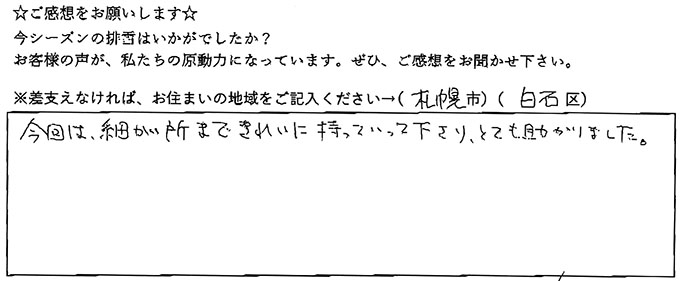 ☆ご感想をお願いします☆
今シーズンの排雪はいかがでしたか？
お客様の声が、私たちの原動力になっています。ぜひ、ご感想をお聞かせ下さい。
※差支えなければ、お住まいの地域をご記入ください→( 札幌市) ( 白石区)
今回は、細かい所まできれいに持っていって下さり、とても助かりました。